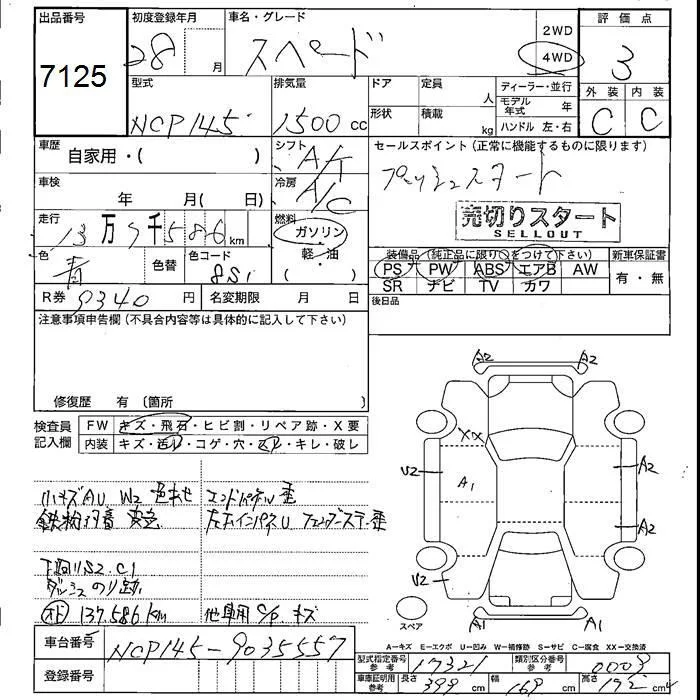 出品番号
7125
初度登録年月
28 月
車名・グレード
スペード
2WD
4WD
評価点
3
外装 内装
C C
型式
NCP145
排気量
1500 cc
ドア
定員
人
形状
積載
kg
ディーラー・並行
モデル年式 年
ハンドル 左・右
車歴
自家用・( )
シフト
A/T
セールスポイント(正常に機能するものに限ります)
プッシュスタート
売切りスタート
SELLOUT
車検
年 月( 日)
冷房
A/C
走行
13万7千586 km
燃料
ガソリン
軽・油
色
青
色替
色コード
8S1
装備品(純正品に限り○をつけて下さい)
PS PW ABS エアB AW
SR ナビ TV カワ
新車保証書
有・無
R券 9340 円
名変期限 月 日
後日品
注意事項申告欄(不具合内容等は具体的に記入して下さい)
修復歴 有(箇所
検査員記入欄
FW キズ・飛石・ヒビ割・リペア跡・X要
内装 キズ・汚れ・コゲ・穴・スレ・キレ・破レ
小キズAU W2 色あせ
エンドパネル歪
左右インパネU フェンダーステー歪
下廻りS2.C1
ダッシュのり跡
137,586km
他車用 キズ
A2 A2
XX
V2
A1
A2
A2
V2
A1 A1
スペア
A=キズ E=エクボ U=凹み W=補修跡 S=サビ C=腐食 XX=交換済
車台番号
NCP145-9035557
登録番号
型式指定番号 参考
17321
類別区分番号 参考
0003
車庫証明用 参考
長さ 399 cm
幅 169 cm
高さ 172 cm